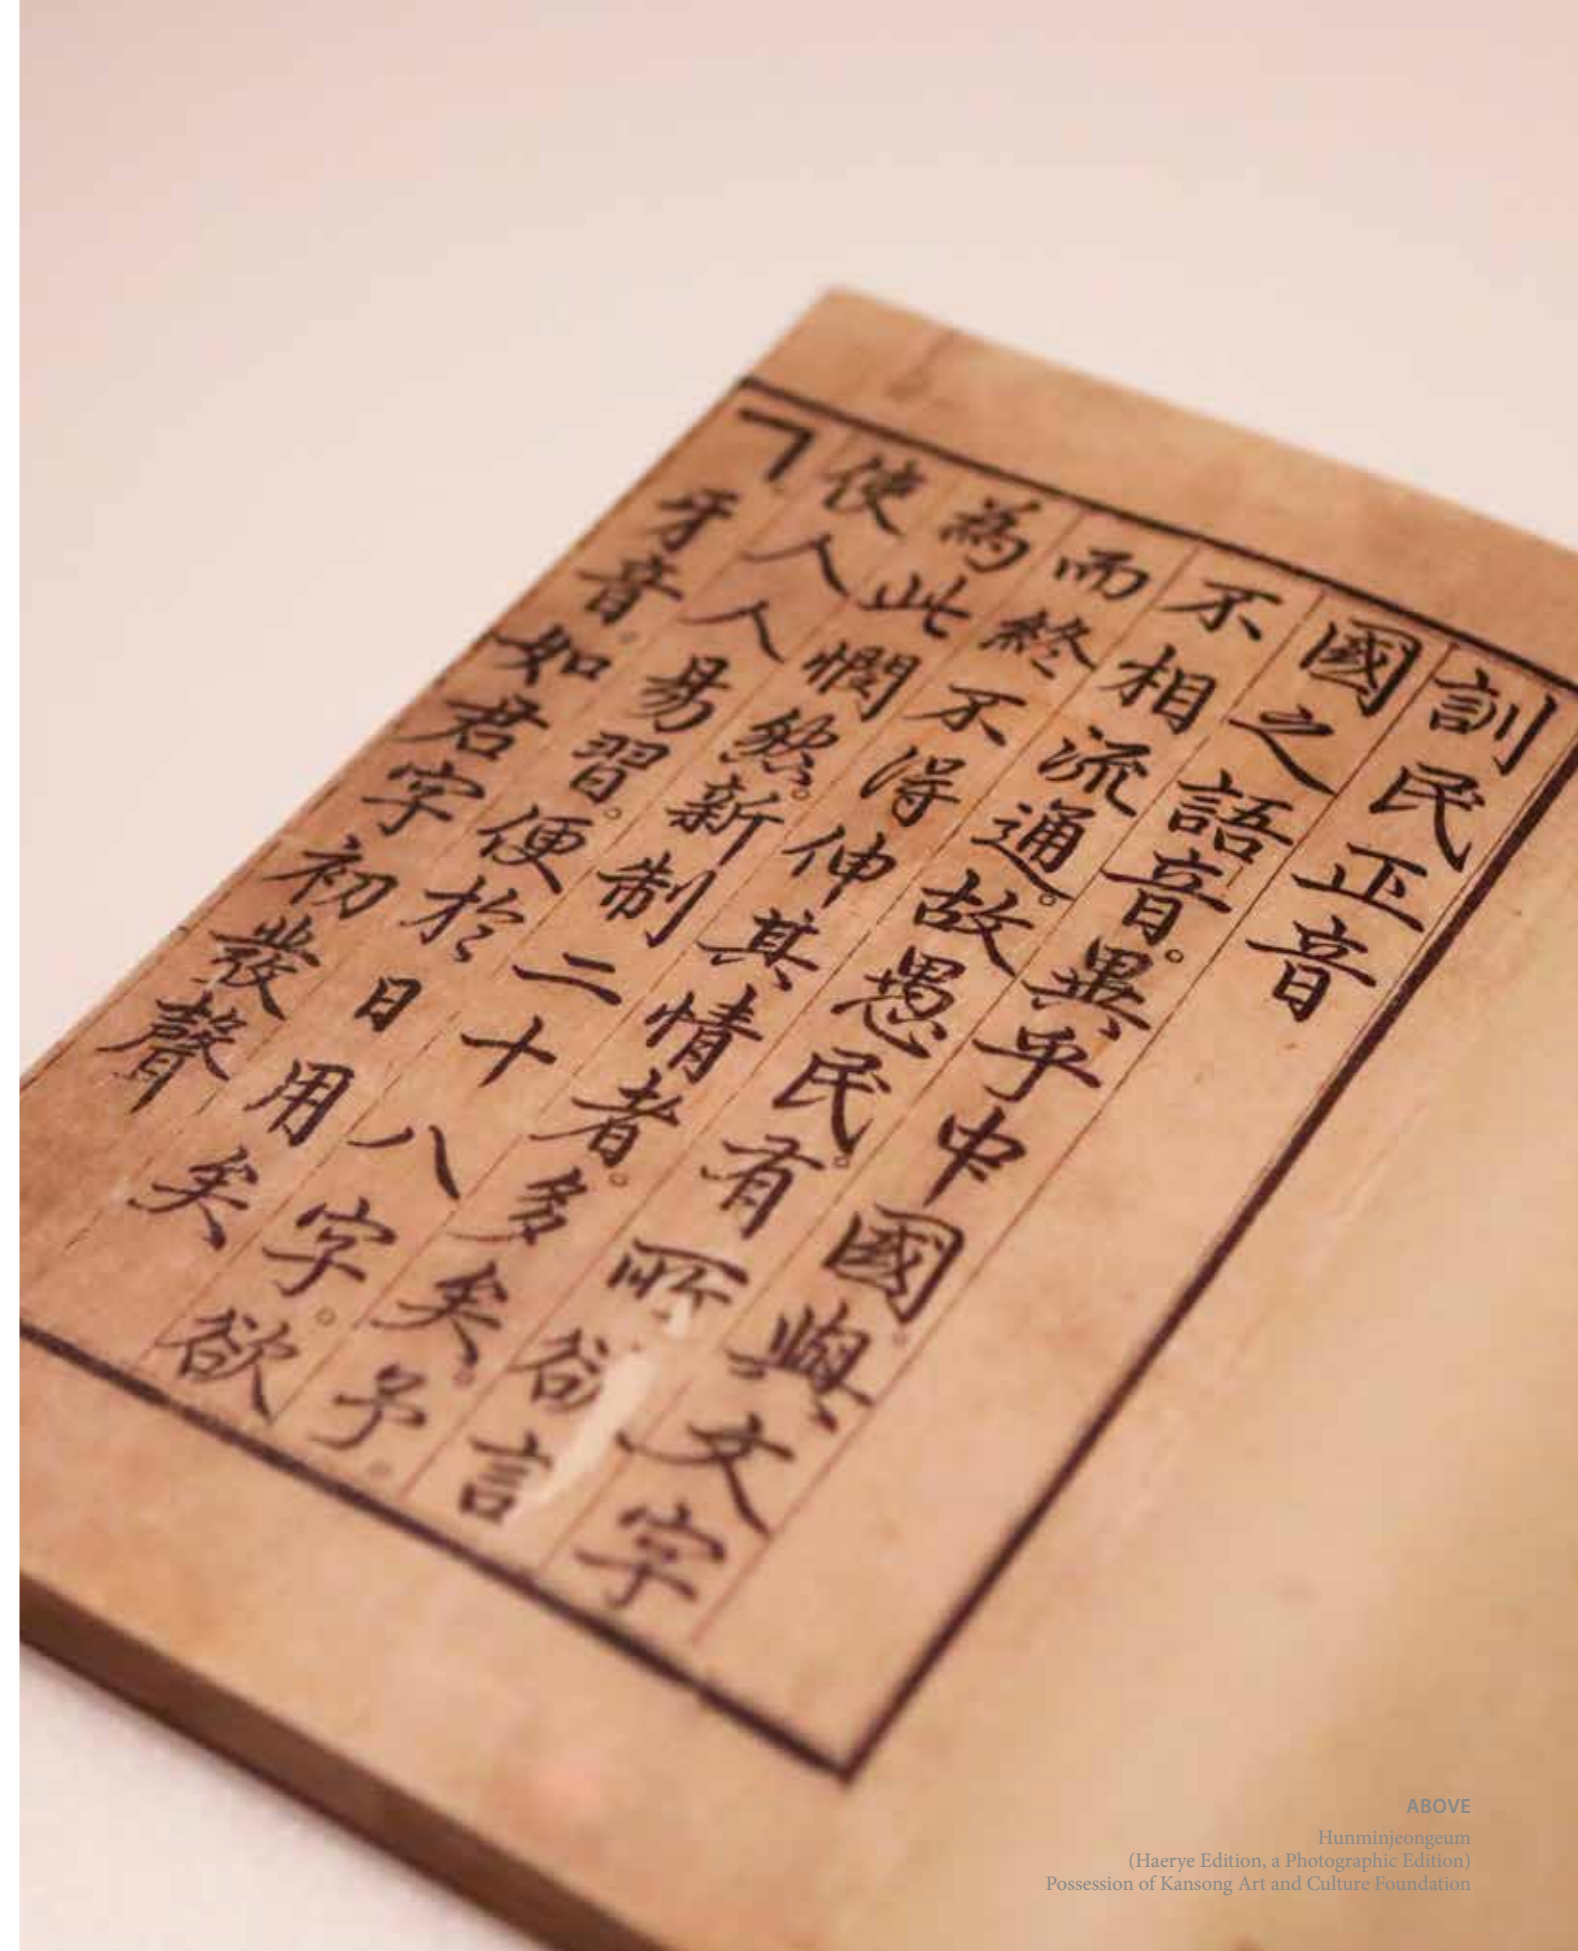 訓民正音
國之語音。異乎中國。與文字
不相流通。故愚民。有所欲言
而終不得伸其情者。多矣。予。
為此憫然。新制二十八字。欲
使人人易習。便於日用矣
ㄱ牙音。如君字初發聲
ABOVE
Hunminjeongeum
(Haerye Edition, a Photographic Edition)
Possession of Kansong Art and Culture Foundation